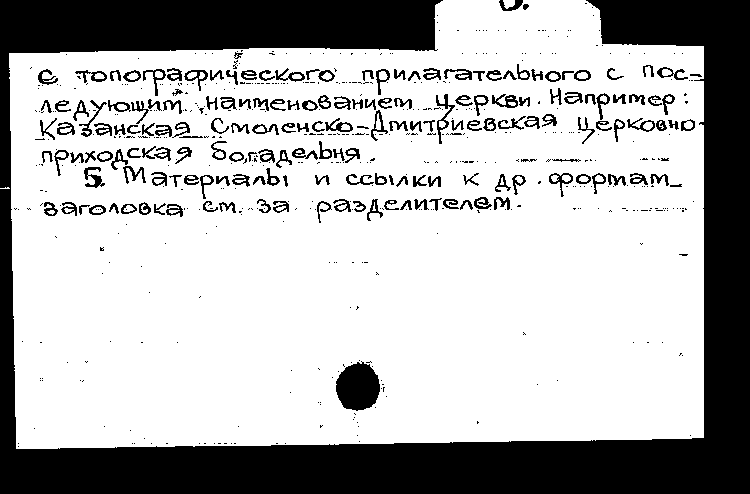 с топографического прилагательного с пос-
ледующим наименованием церкви. Например:
Казанская Смоленско-Дмитриевская церковно-
приходская богадельня.
5. Материалы и ссылки к др. формам
заголовка см. за разделителем.